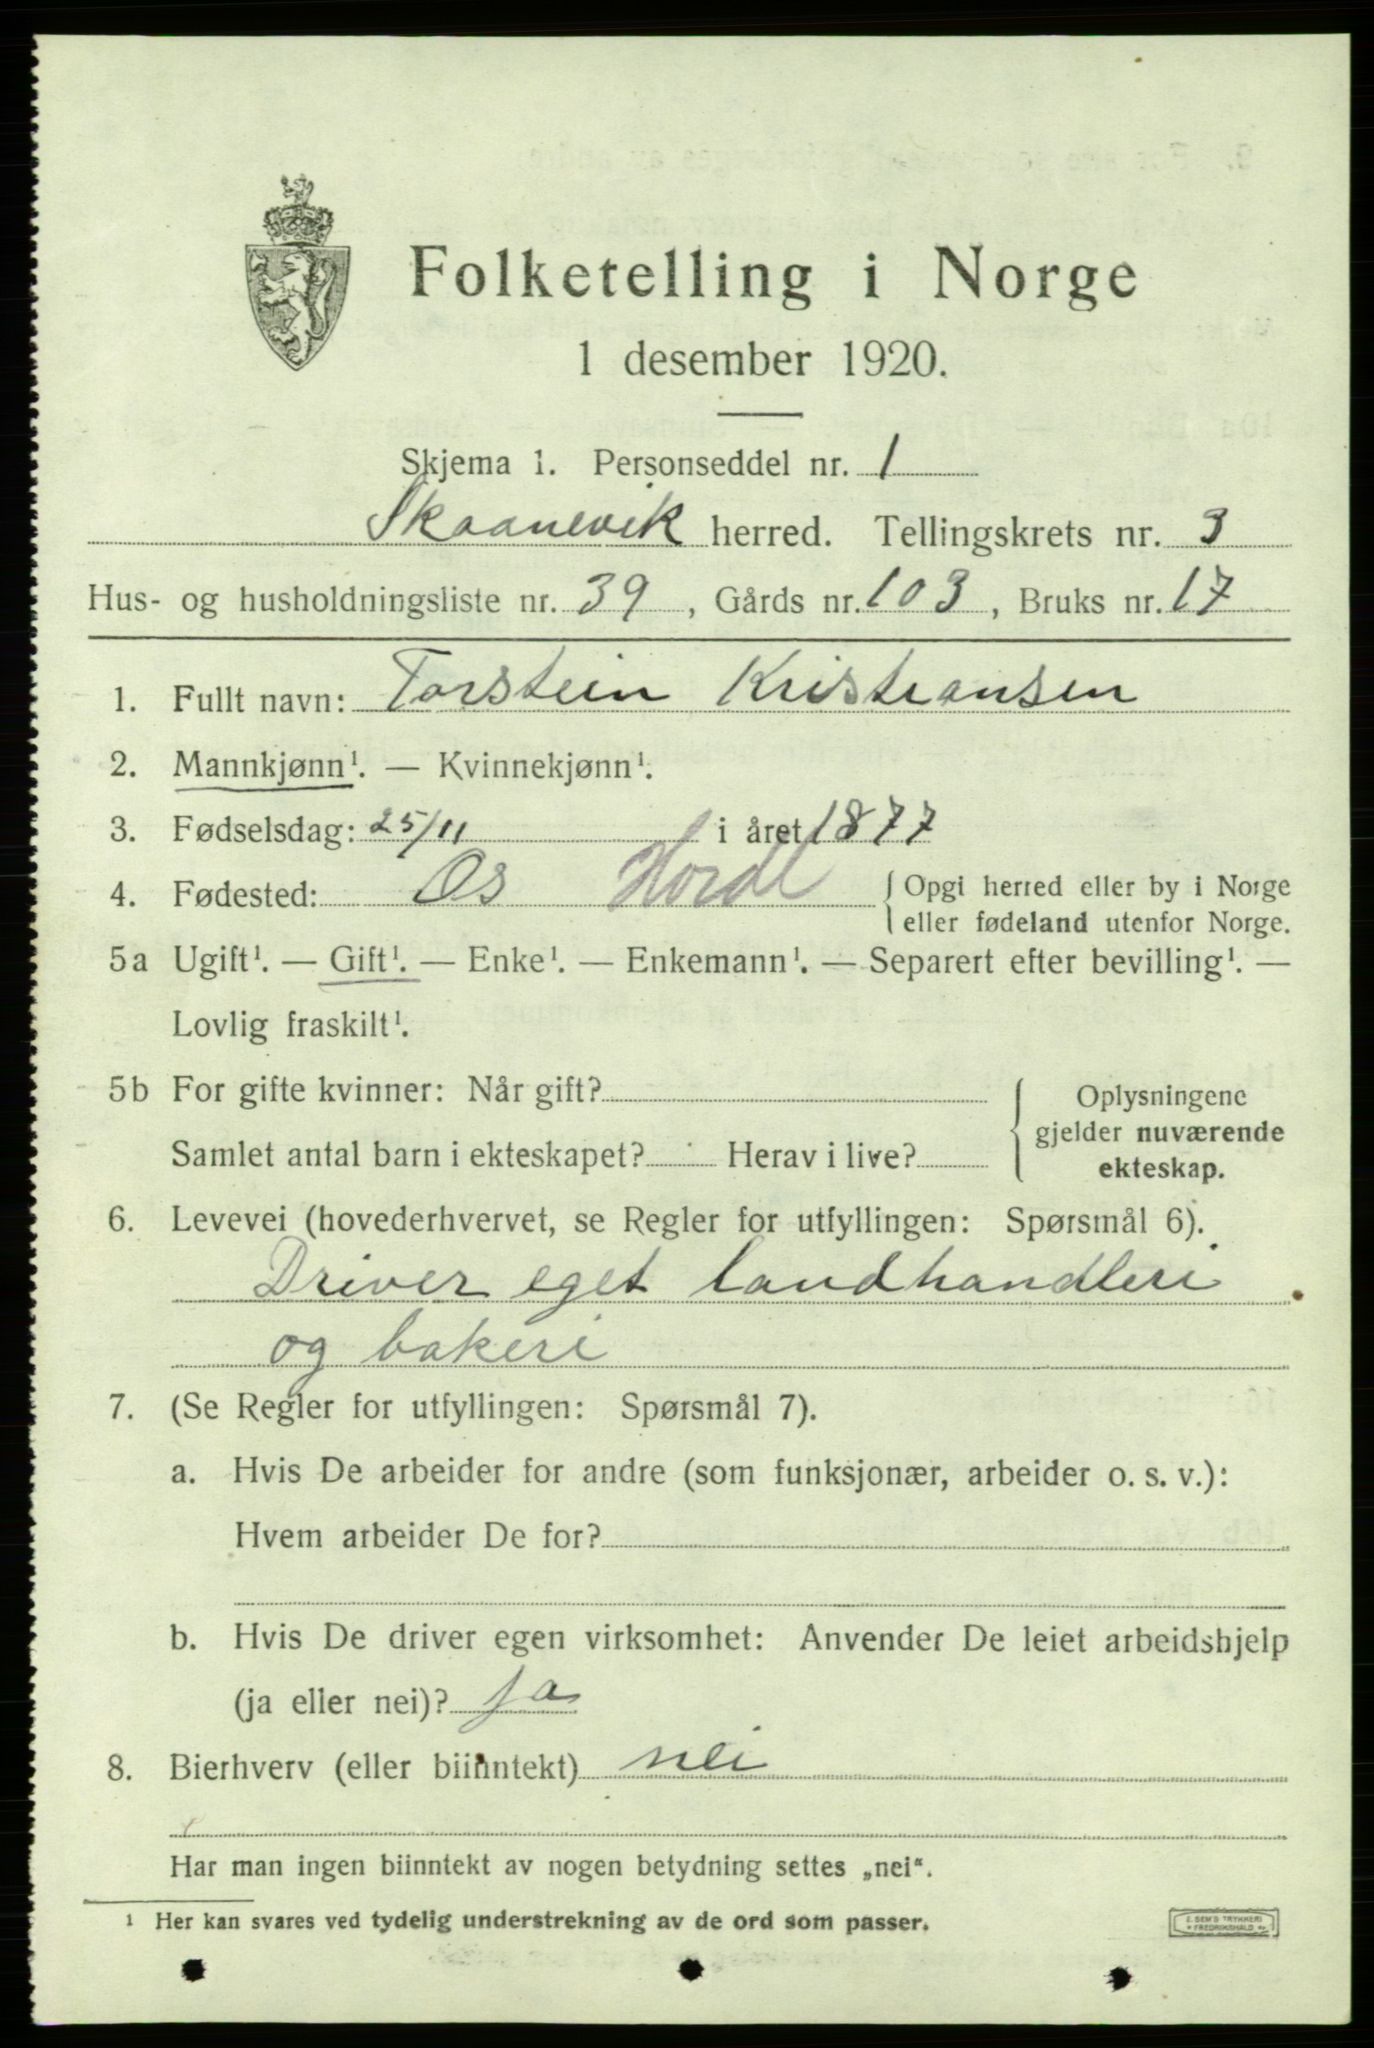 Folketelling i Norge
1 desember 1920.
Skjema 1. Personseddel nr. 1
Skaanevik herred. Tellingskrets nr. 3
Hus- og husholdningsliste nr. 39, Gårds nr. 103, Bruks nr. 17
1. Fullt navn: Torstein Kristiansen
2. Mannkjønn¹. — Kvinnekjønn¹.
3. Fødselsdag: 25/11 i året 1877
4. Fødested: Os Hordl { Opgi herred eller by i Norge
eller fødeland utenfor Norge.
5a Ugift¹. — Gift¹. — Enke¹. — Enkemann¹. — Separert efter bevilling¹. —
Lovlig fraskilt¹.
5b For gifte kvinner: Når gift? { Oplysningene
gjelder nuværende
Samlet antal barn i ekteskapet? Herav i live? ekteskap.
6. Levevei (hovederhvervet, se Regler for utfyllingen: Spørsmål 6).
Driver eget landhandleri
og bakeri
7. (Se Regler for utfyllingen: Spørsmål 7).
a. Hvis De arbeider for andre (som funksjonær, arbeider o. s. v.):
Hvem arbeider De for?
b. Hvis De driver egen virksomhet: Anvender De leiet arbeidshjelp
(ja eller nei)? ja
8. Bierhverv (eller biinntekt) nei
Har man ingen biinntekt av nogen betydning settes „nei“.
¹ Her kan svares ved tydelig understrekning av de ord som passer.
E. SEM'S TRYKKERI
FREDRIKSHALD